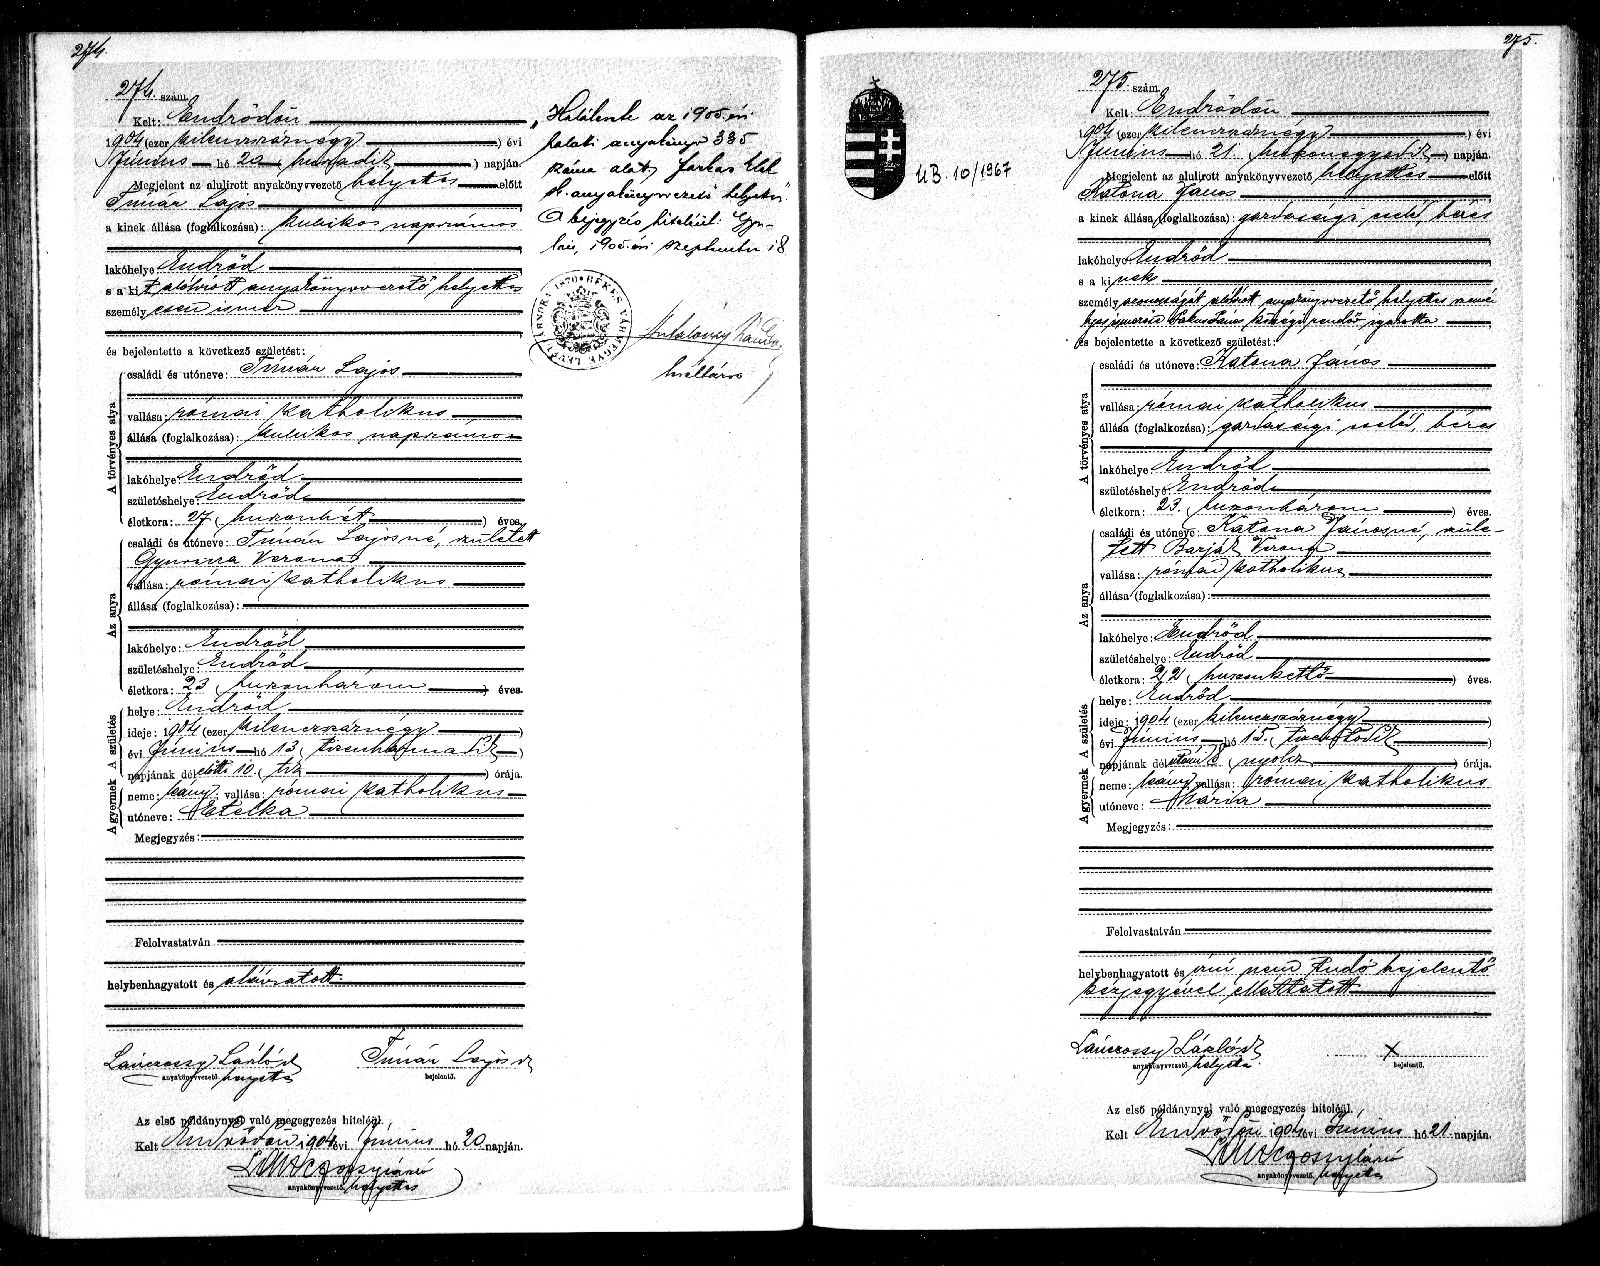 274.
274. szám.
Kelt: Endrődön
1904 (ezer kilenczszáznégy) évi
Június hó 20 (huszadik) napján.
Megjelent az alulirott anyakönyvvezető helyettes előtt
Timár Lajos
a kinek állása (foglalkozása): kubikos napszámos
lakóhelye Endrőd
s a kit alólirott anyakönyvvezető helyettes
személyesen ismer
és bejelentette a következő születést:
A törvényes atya
családi és utóneve: Timár Lajos
vallása: római katholikus
állása (foglalkozása): kubikos napszámos
lakóhelye Endrőd
születéshelye: Endrőd
életkora: 27 (huszonhét) éves.
Az anya
családi és utóneve: Timár Lajosné, született
Gyuricza Verona
vallása: római katholikus
állása (foglalkozása):
lakóhelye: Endrőd
születéshelye: Endrőd
életkora: 23 (huszonhárom) éves.
A születés
helye: Endrőd
ideje: 1904 (ezer kilenczszáznégy)
évi Június hó 13 (tizenharmadik)
napjának délelőtti 10 (tiz) órája.
A gyermek
neme: leány; vallása: római katholikus
utóneve: Etelka
Megjegyzés:
Felolvastatván
helybenhagyatott és aláiratott.
Lánczossy László sk
anyakönyvvezető helyettes
Timár Lajos sk
bejelentő.
Az első példánynyal való megegyezés hiteléül.
Kelt Endrődön 1904 évi Június hó 20 napján.
Lánczossy László
anyakönyvvezető helyettes
„Haláleset az 1905. évi
halotti anyakönyv 335
száma alatt, Farkas
h. anyakönyvvezető helyettes"
A bejegyzés hiteléül: Gyu-
lán, 1905. évi szeptember 18
BÉKÉS VÁRMEGYE LEVÉLTÁRNOKA 1876
levéltárnok
ÚB. 10/1967
275.
275. szám.
Kelt: Endrődön
1904 (ezer kilenczszáznégy) évi
Június hó 21 (huszonegyedik) napján.
Megjelent az alulirott anyakönyvvezető helyettes előtt
Katona János
a kinek állása (foglalkozása): gazdasági cseléd, béres
lakóhelye Endrőd
s a kinek
személyazonosságát alólirott anyakönyvvezető helyettes szemé-
lyes ismerőse községi rendőr igazolta
és bejelentette a következő születést:
A törvényes atya
családi és utóneve: Katona János
vallása: római katholikus
állása (foglalkozása): gazdasági cseléd, béres
lakóhelye Endrőd
születéshelye: Endrőd
életkora: 23. (huszonhárom) éves.
Az anya
családi és utóneve: Katona Jánosné, szüle-
tett Barját Verona
vallása: római katholikus
állása (foglalkozása):
lakóhelye: Endrőd
születéshelye: Endrőd
életkora: 22 (huszonkettő) éves.
A születés
helye: Endrőd
ideje: 1904 (ezer kilenczszáznégy)
évi Június hó 15. (tizenötödik)
napjának délutáni 8 (nyolcz) órája.
A gyermek
neme: leány; vallása: római katholikus
utóneve: Mária
Megjegyzés:
Felolvastatván
helybenhagyatott és irni nem tudó bejelentő
kézjegyével elláttatott
Lánczossy László sk
anyakönyvvezető helyettes
X
bejelentő.
Az első példánynyal való megegyezés hiteléül.
Kelt Endrődön 1904 évi Június hó 21 napján.
Lánczossy László
anyakönyvvezető helyettes